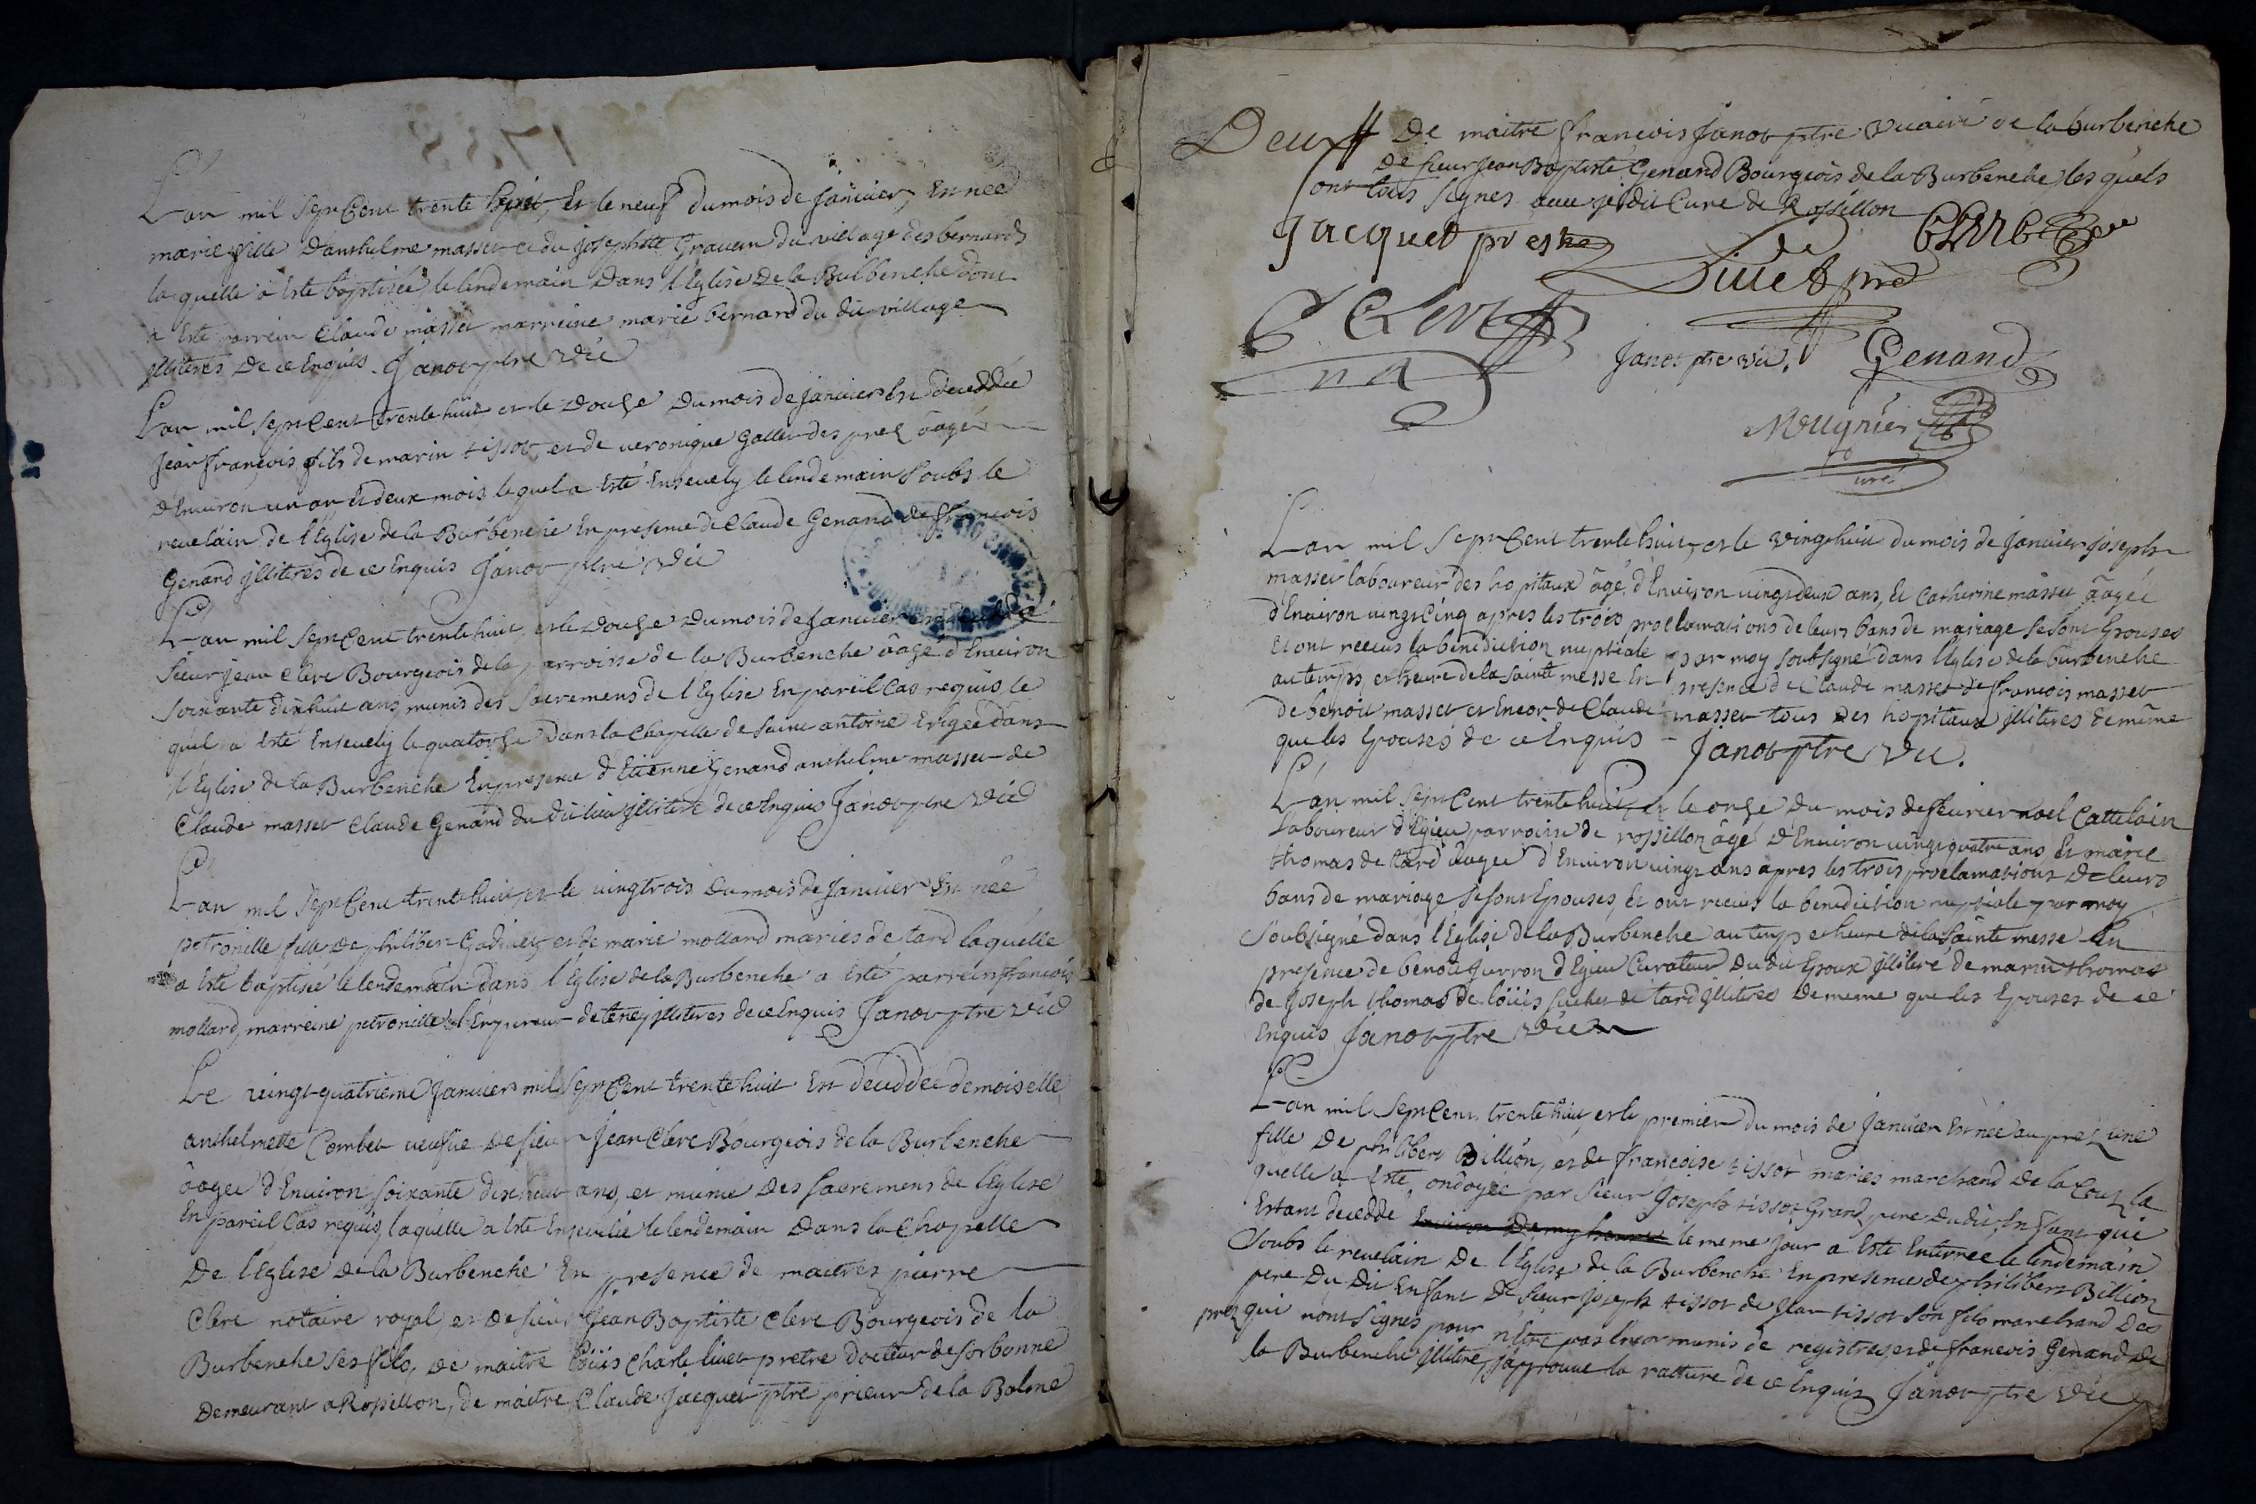 L'an mil sept Cent trente huit, et le neuf du mois de janvier, Est née
marie fille D'anthelme masset et du josephte Gravein du village des bernards
la quelle a Esté baptisée le lendemain Dans l'Eglise De la Bulbenche dont
a Esté parrein Claude masset marreine marie bernard du dit village
jllitérés De ce Enquis. Janot ptre vic
L'an mil sept Cent trente huit et le Douse Du mois de janvier Est deceddé
jean françois fils de marin tissot, et de veronique Gallet des prez âagé
d'Environ un an et deux mois lequel a Esté Ensevely le lendemain soubs le
revelain de l'Eglise de la Burbenche En presence de Claude Genand de françois
Genand jllitérés de ce Enquis Janot ptre vic
L'an mil sept Cent trente huit, et le Douse Du mois de janvier est deceddé
sieur jean Clerc Bourgeois de la parroisse de la Burbenche âagé d'Environ
soixante dix huit ans, munis des sacremens de l'Eglise En pareil Cas requis, le
quel a Esté Ensevely le quatorse Dans la Chapelle de saint antoine Erigée dans
l'Eglise de la Burbenche En presence d'Etienne Genand anthelme masset de
Claude masset Claude Genand du dit lieu jllitéré de ce Enquis Janot ptre vic
L'an mil sept Cent trente huit, et le vingtrois Du mois de janvier Est née
petronille fille De philibert Godinet, et de marie mollard mariés de tard laquelle
a Esté baptisée le lendemain dans l'Eglise de la Burbenche a Esté parrein françois
mollard, marreine petronille l'Empereur de teney jllitérés de ce Enquis Janot ptre vic
Le vingt quatrieme Janvier mil sept Cent trente huit Est deceddée demoiselle
anthelmette Combet veufue De sieur jean Clerc Bourgeois de la Burbenche
âagée d'Environ soixante dix huit ans, et munie Des sacremens de l'Eglise
En pareil Cas requis, laquelle a Esté Ensevelie le lendemain Dans la Chapelle
De l'Eglise De la Burbenche En presence de maitres pierre
Clerc notaire royal, et De sieur Jean Baptiste Clerc Bourgeois de la
Burbenche ses fils, De maitre Loüis Charle livet pretre docteur de sorbonne
Demeurant a Rossillon, de maitre Claude Jacquet ptre prieur de la Balme
Deux De maitre françois Janot ptre vicaire de la burbenche
de sieur Jean Baptiste Genand Bourgeois de la Burbenche, les quels
ont tous signés avec le dit Curé de Rossillon
Jacquet prestre De Livet pre CLERC
CLERC
na
Janot ptre vic. Genand
Meugnier
curé
L'an mil sept Cent trente huit, et le vingthuit du mois de janvier joseph
masset laboureur des hopitaux âgé d'Environ vingt deux ans, Et Catherine masset âagée
d'Environ vingt Cinq apres les trois proclamations de leurs bans de mariage se sont Epousés
Et ont recûs la benediction nuptiale par moy soubsigné dans l'Eglise de la burbenche
au temps, et heure de la sainte messe En presence de Claude masset de françois masset
de benoit masset et Encor de Claude masset tous Des hopitaux jllitérés de même
que les Epousés de ce Enquis - Janot ptre vic.
L'an mil sept Cent trente huit, et le onse Du mois de feuvrier noel Cattelain
Laboureur d'Egieu parroisse de rossillon âgé D'Environ vingt quatre ans Et marie
thomas de tard âagée d'Environ vingt ans apres les trois proclamations De leurs
bans de mariage se sont Epousés, Et ont recûs la benediction nuptiale par moy
soubsigné dans l'Eglise de la Burbenche au temp et heure de la sainte messe En
presence de benoit Jurron d'Egieu Curateur Du dit Epoux jllitéré de marin thomas
de joseph thomas de loüis de tard jllitérés De meme que les Epousés de ce
Enquis Janot ptre vic
L'an mil sept Cent trente huit, et le premier du mois de janvier Est née au prez une
fille De philibert Billion, et de françoise tissot mariés marchand De la Couz la
quelle a Esté ondoyée par sieur joseph tissot Grand pere du dit Enfant qui
Estant deceddé Environ Demy heure le meme jour a Esté Enterrée le lendemain
soubs le revelain De l'Eglise de la Burbenche En presence de philibert Billion
pere Du Dit Enfant De sieur joseph tissot de jean tissot son fils marchand Des
prez qui n'ont signés pour n'être pas Encor munis de registres, et de françois Genand De
la Burbenche jllitéré, j'approuve la rature de ce Enquis Janot ptre vic